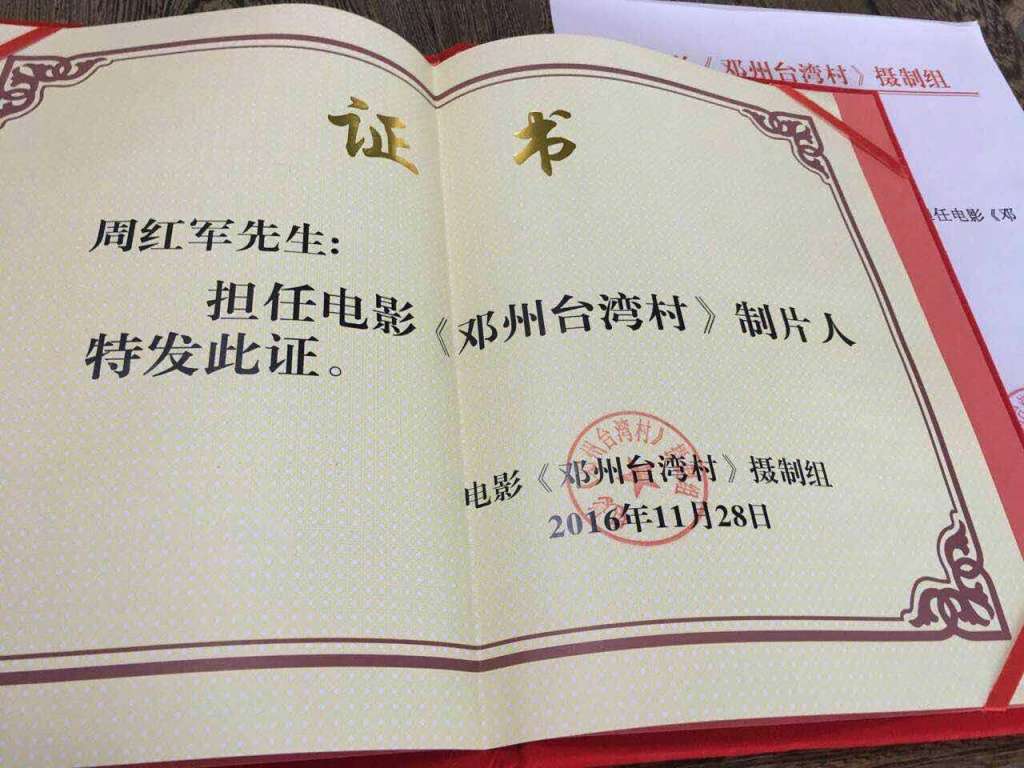 证书
周红军先生:
担任电影《邓州台湾村》制片人
特发此证。
电影《邓州台湾村》摄制组
2016年11月28日
州台湾村》
《邓州台湾村》摄制组
任电影《邓